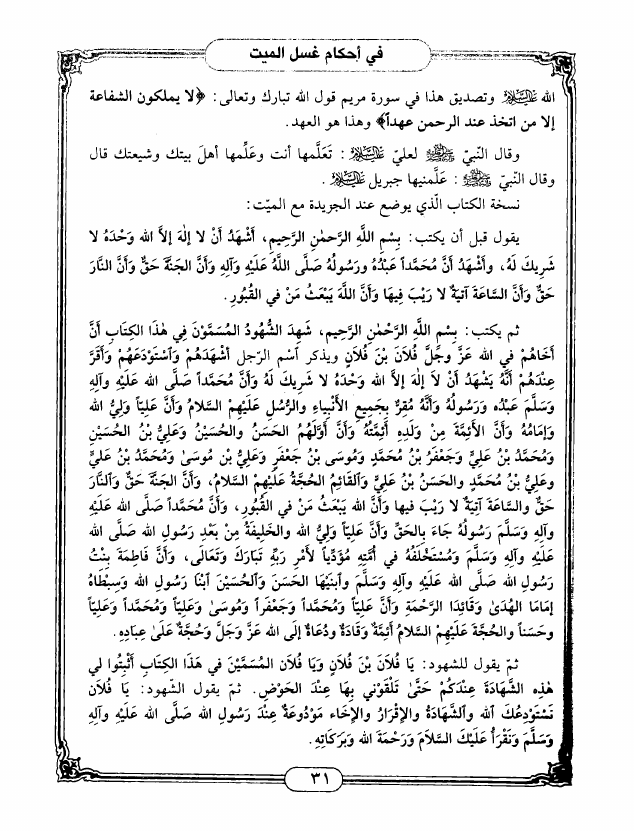 في أحكام غسل الميت
الله عليه السلام وتصديق هذا في سورة مريم قول الله تبارك وتعالى: ﴿لا يملكون الشفاعة
إلا من اتخذ عند الرحمن عهداً﴾ وهذا هو العهد.
وقال النبيّ ﷺ لعليّ عليه السلام: تَعَلَّمها أنت وعَلِّمها أهلَ بيتك وشيعتك قال
وقال النبيّ ﷺ: عَلَّمنيها جبريل عليه السلام.
نسخة الكتاب الّذي يوضع عند الجريدة مع الميّت:
يقول قبل أن يكتب: بِسْمِ اللَّهِ الرَّحمٰنِ الرَّحِيمِ، أَشْهَدُ أَنْ لا إلٰهَ إلاَّ الله وَحْدَهُ لا
شَرِيكَ لَهُ، وأَشْهَدُ أَنَّ مُحَمَّداً عَبْدُهُ ورَسُولُهُ صَلَّى اللَّهُ عَلَيْهِ وَآلِهِ وَأَنَّ الجَنَّةَ حَقٌّ وَأَنَّ النَّارَ
حَقٌّ وَأَنَّ السَّاعَةَ آتِيَةٌ لا رَيْبَ فِيهَا وَأَنَّ اللَّهَ يَبْعَثُ مَنْ في القُبُورِ.
ثم يكتب: بِسْمِ اللَّهِ الرَّحْمٰنِ الرَّحِيمِ، شَهِدَ الشُّهُودُ المُسَمَّوْنَ فِي هٰذَا الكِتَابِ أَنَّ
أَخَاهُمْ في الله عَزَّ وجَلَّ فُلاَنَ بْنَ فُلاَنٍ ويذكر اَسْم الرّجل أَشْهَدَهُمْ وَاَسْتَوْدَعَهُمْ وَأَقَرَّ
عِنْدَهُمْ أَنَّهُ يَشْهَدُ أَنْ لاَ إلٰهَ إلاَّ الله وَحْدَهُ لا شَرِيكَ لَهُ وَأَنَّ مُحَمَّداً صَلَّى الله عَلَيْهِ وَآلِهِ
وَسَلَّمَ عَبْدُه وَرَسُولُهُ وَأَنَّهُ مُقِرٌّ بِجَمِيعِ الأَنْبِياءِ والرُّسُلِ عَلَيْهِمُ السَّلاَمُ وَأَنَّ عَلِيّاً وَلِيُّ الله
وَإِمَامُهُ وَأَنَّ الأَئِمَّةَ مِنْ وَلَدِهِ أَئِمَّتُهُ وَأَنَّ أَوَّلَهُم الحَسَنُ والحُسَيْنُ وَعَلِيُّ بْنُ الحُسَيْنِ
وَمُحَمَّدُ بْنُ عَلِيٍّ وَجَعْفَرُ بْنُ مُحَمَّدٍ وَمُوسَى بْنُ جَعْفَرٍ وَعَلِيُّ بْن مُوسَىٰ وَمُحَمَّدُ بْنُ عَلِيٍّ
وعَلِيُّ بْنُ مُحَمَّدٍ والحَسَنُ بْنُ عَلِيٍّ وَاَلقَائِمُ الحُجَّةُ عَلَيْهِمُ السَّلامُ، وَأَنَّ الجَنَّةَ حَقٌّ وَاَلنَّارَ
حَقٌّ والسَّاعَةَ آتِيَةٌ لا رَيْبَ فيها وَأَنَّ الله يَبْعَثُ مَنْ في القُبُورِ، وَأَنَّ مُحَمَّداً صَلَّى الله عَلَيْهِ
وآلِهِ وَسَلَّمَ رَسُولُهُ جَاءَ بِالحَقِّ وَأَنَّ عَلِيّاً وَلِيُّ الله والخَلِيفَةُ مِنْ بَعْدِ رَسُولِ الله صَلَّى الله
عَلَيْهِ وَآلِهِ وَسَلَّمَ وَمُسْتَخْلَفُهُ في أُمَّتِهِ مُؤَدِّياً لأَمْرِ رَبِّهِ تَبَارَكَ وَتَعَالَى، وَأَنَّ فَاطِمَةَ بِنْتُ
رَسُولِ الله صَلَّى الله عَلَيْهِ وَآلِهِ وَسَلَّمَ واَبنَيْهَا الحَسَنَ وَاَلحُسَيْنَ اَبْنَا رَسُولِ الله وَسِبْطَاهُ
إمَامَا الهُدَىٰ وَقَائِدَا الرَّحْمَةِ وَأَنَّ عَلِيّاً وَمُحَمَّداً وَجَعْفَراً وَمُوسَىٰ وَعَلِيّاً وَمُحَمَّداً وَعَلِيّاً
وحَسَناً والحُجَّةَ عَلَيْهِمُ السَّلامُ أَئِمَّةٌ وَقَادَةٌ وَدُعَاةٌ إِلَى الله عَزَّ وَجَلَّ وَحُجَّةٌ عَلَىٰ عِبادِهِ.
ثمّ يقول للشهود: يَا فُلاَنَ بْنَ فُلاَنٍ وَيَا فُلاَن المُسَمَّيْنَ في هَذَا الكِتَابِ أَثْبِتُوا لي
هٰذِهِ الشَّهَادَةَ عِنْدَكُمْ حَتَّىٰ تَلْقَوْنِي بِهَا عِنْدَ الحَوْضِ. ثمّ يقول الشّهود: يَا فُلاَن
نَسْتَوْدِعُكَ اَلله وَاَلشَّهَادَةُ والإِقْرَارُ وَالإِخَاء مَوْدُوعَةٌ عِنْدَ رَسُولِ الله صَلَّى الله عَلَيْهِ وآلِهِ
وَسَلَّمَ وَنَقْرَأُ عَلَيْكَ السَّلاَمَ وَرَحْمَةَ الله وَبَرَكَاتِهِ.
٣١